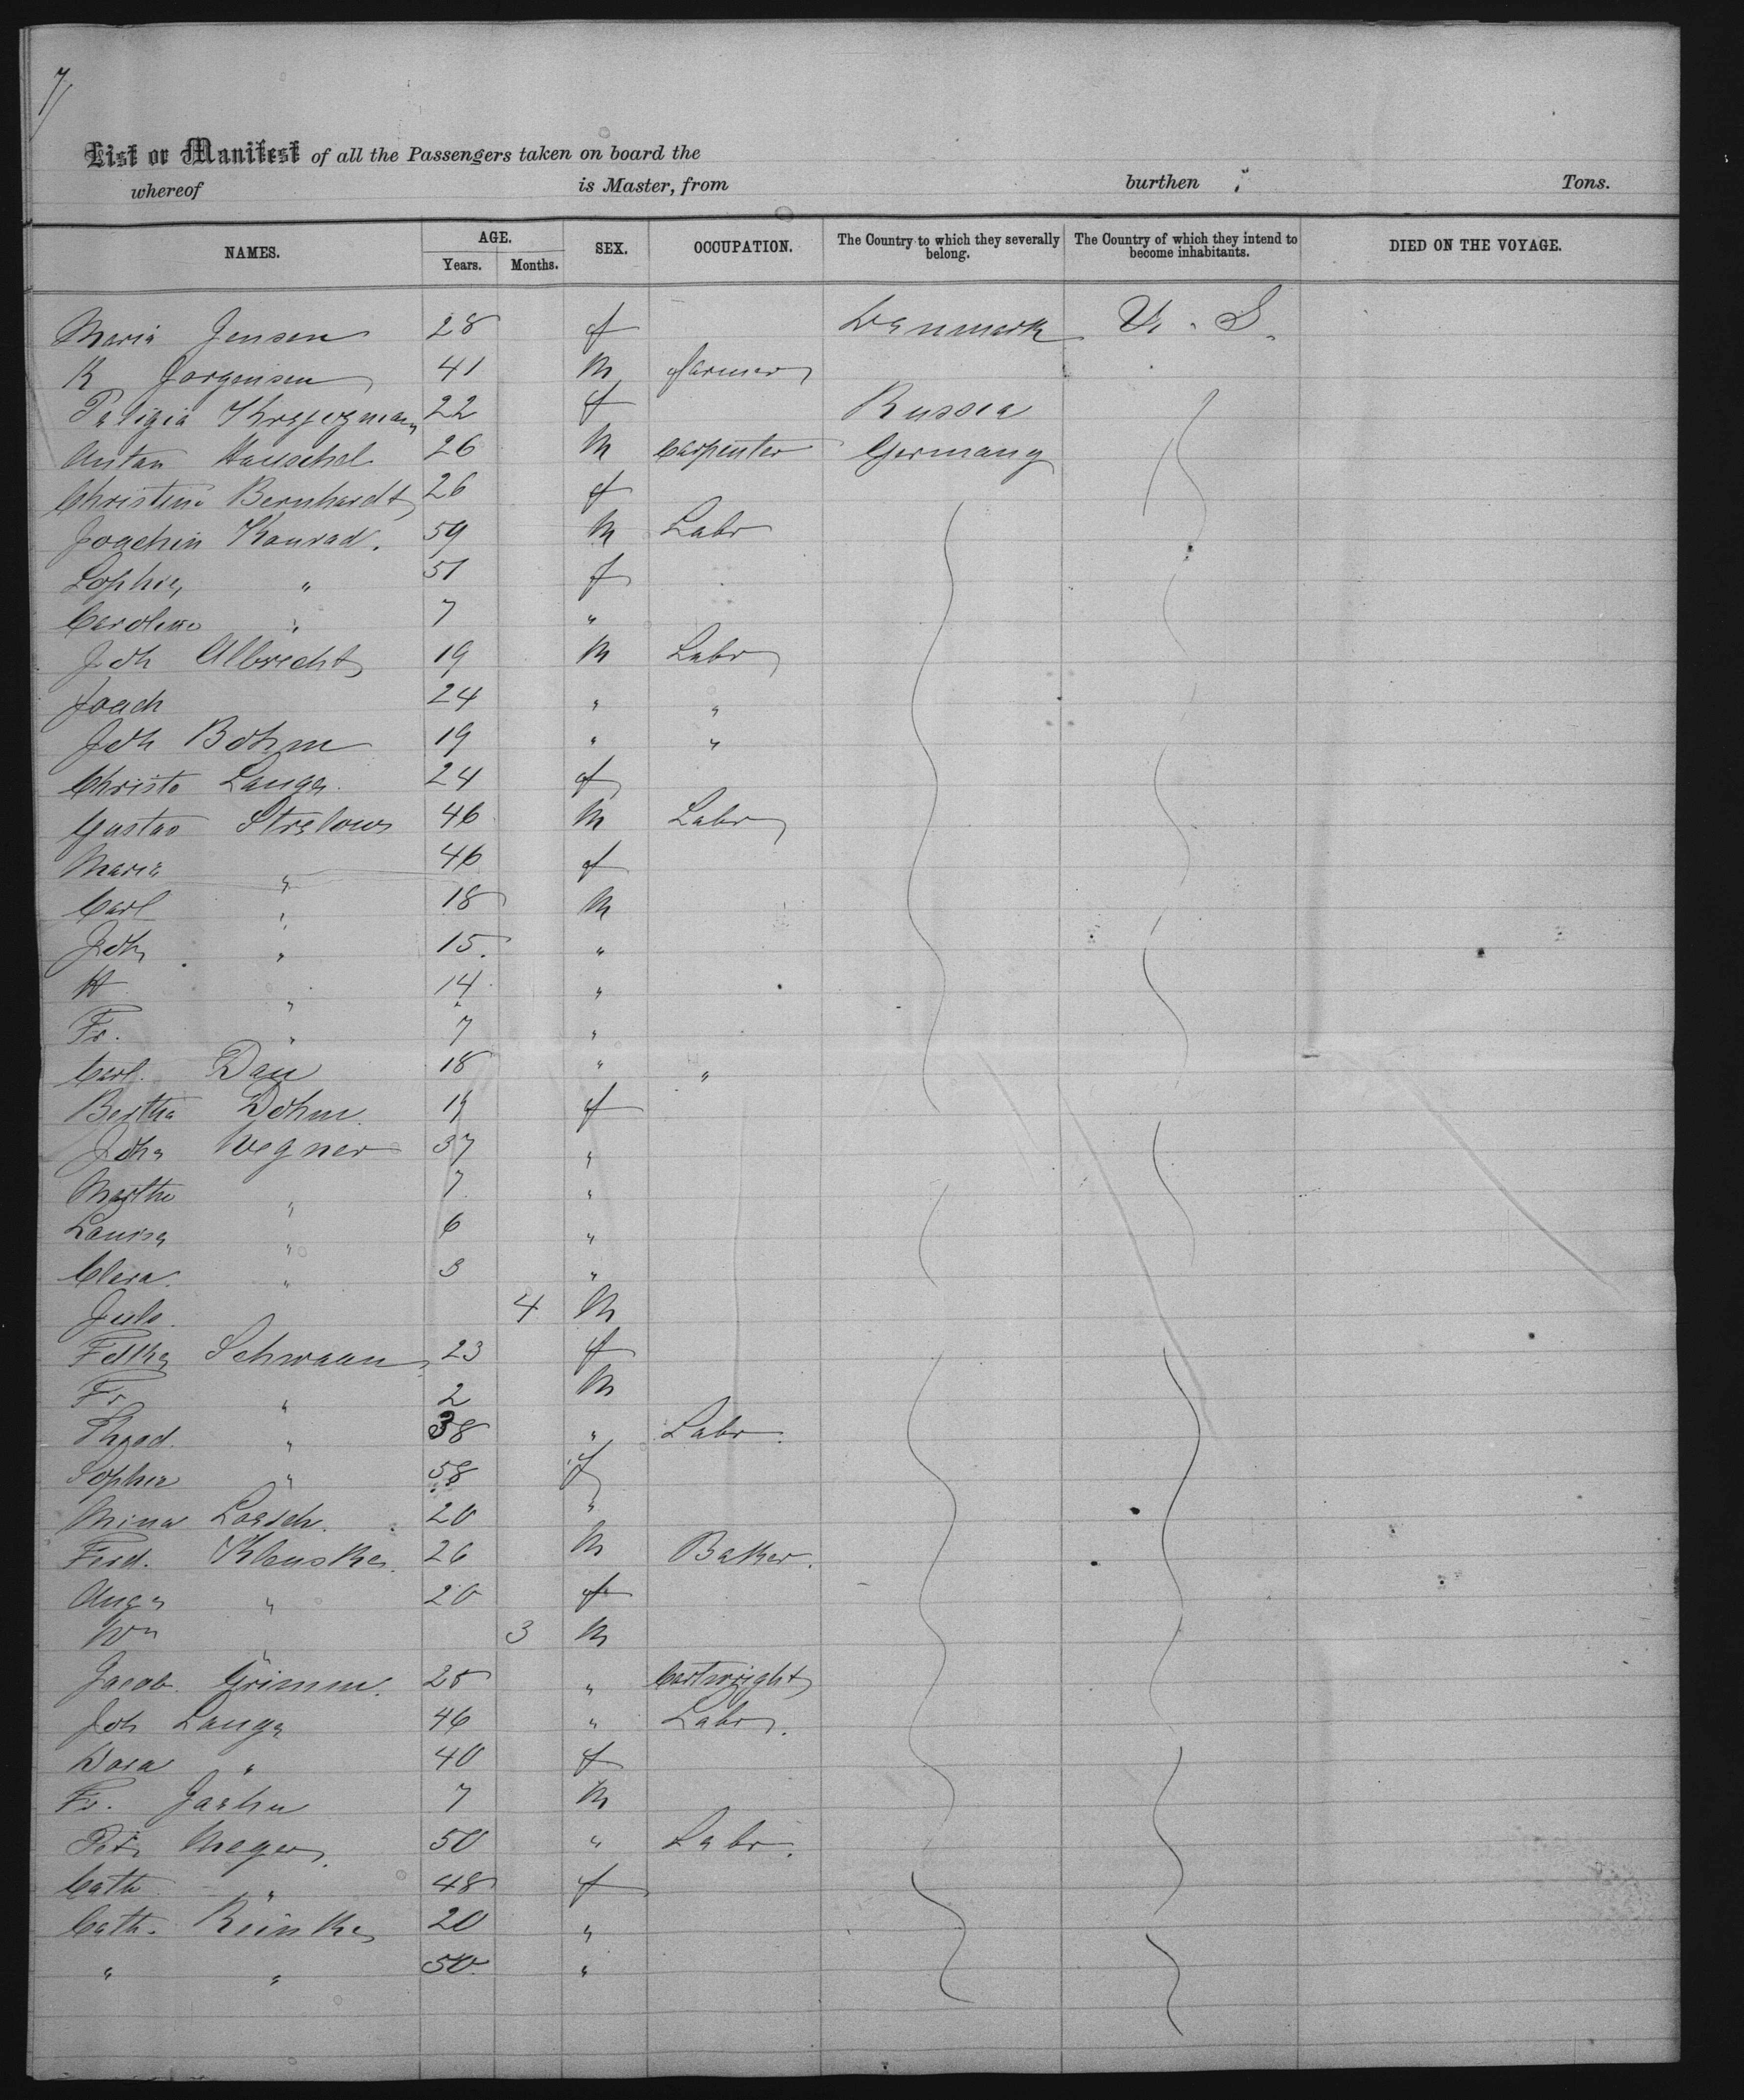 7/
List or Manifest of all the Passengers taken on board the
whereof is Master, from burthen Tons.
NAMES. AGE. Years. Months. SEX. OCCUPATION. The Country to which they severally belong. The Country of which they intend to become inhabitants. DIED ON THE VOYAGE.
Maria Jensen 28 f Denmark U. S.
K Jorgensen 41 M farmer
22 f Russia
Anton Hauschel 26 M Carpenter Germany
Christine Bernhardt 26 f
Joachin Konrad. 59 M Labr
Sophie " 51 f
Caroline " 7 "
Joh Albrecht 19 M Labr
Joach 24 " "
Joh Bohm 19 " "
Christe Lange. 24 f
Gustav Strelow 46 M Labr
Maria " 46 f
Carl " 18 M
Joh " 15. "
H " 14 "
Fr. " 7 "
Carl. Dau 18 " "
Bertha Dohm. 19 f
Joha Wegner 37 "
Martha " 7 "
Louisa " 6 "
Clara. " 3 "
Juls. 4 M
Schwaan 23 f
Fr " 2 M
Theod. " 38 " Labr.
Sophie " 58 f
Mina Loesch. 20 "
Ferd. Klenske. 26 M Baker.
Auga " 20 f
Wm " 3 M
Jacob. Grimm. 28 " Cartwright
Joh Lange 46 " Labr.
Dora " 40 f
Fr. Jaehn 7 M
Petr Meyer. 50 " Labr.
Cath " 48 f
Cath. Reinke 20 "
" " 50 "